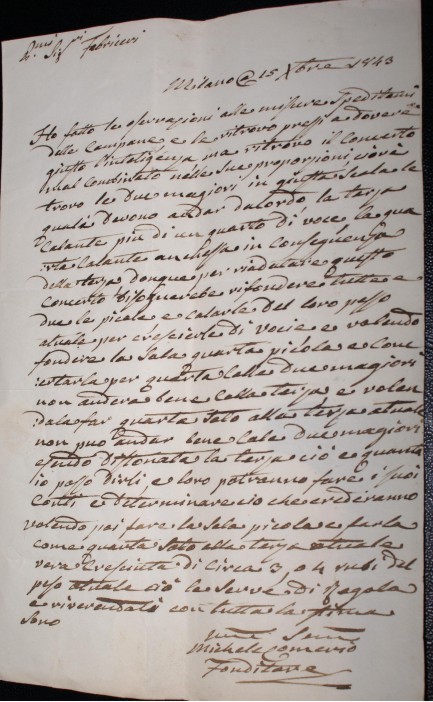 Sig.ri Fabriceri
Milano @ 15 Xbre 1843
Ho fatto le oservazioni alle misure Speditami
delle Campane e le ritrovo pressi a dovere
giusto l'inteligenza ma ritrovo il concerto
mal combinato nelle sue proporzioni, cioè
trovo le due magiori in giusta Scala le
quali devono andar dacordo la terza
Calante più di un quarto di voce la qua
rta Calante anchessa in conseguenza
dela terza donque per riadatare questo
Concerto bisognerebe rifondere tutte e
due le picole e calarle del loro peso
atuale per crescierle di vocie e volendo
fondere la Sola quarta picola e Con
certarla per quarta Colle due magiori
non andera bene colla terza e volen
dola far quarta Solo alla terza atuale
non può andar bene Cole due magiori
esendo distonata la terza ciò e quanto
io posso dirli e loro potranno fare i suoi
Conti e determinare cio che crederanno
volendo poi fare la Sola picola e farla
come quarta Solo alla terza atuale
verà Cresciuta di Circa 3 o 4 rubi del
peso atuale ciò le Serve di Regola
e riverendoli con tutta la Stima
Sono
Michele Comerio
Fonditore